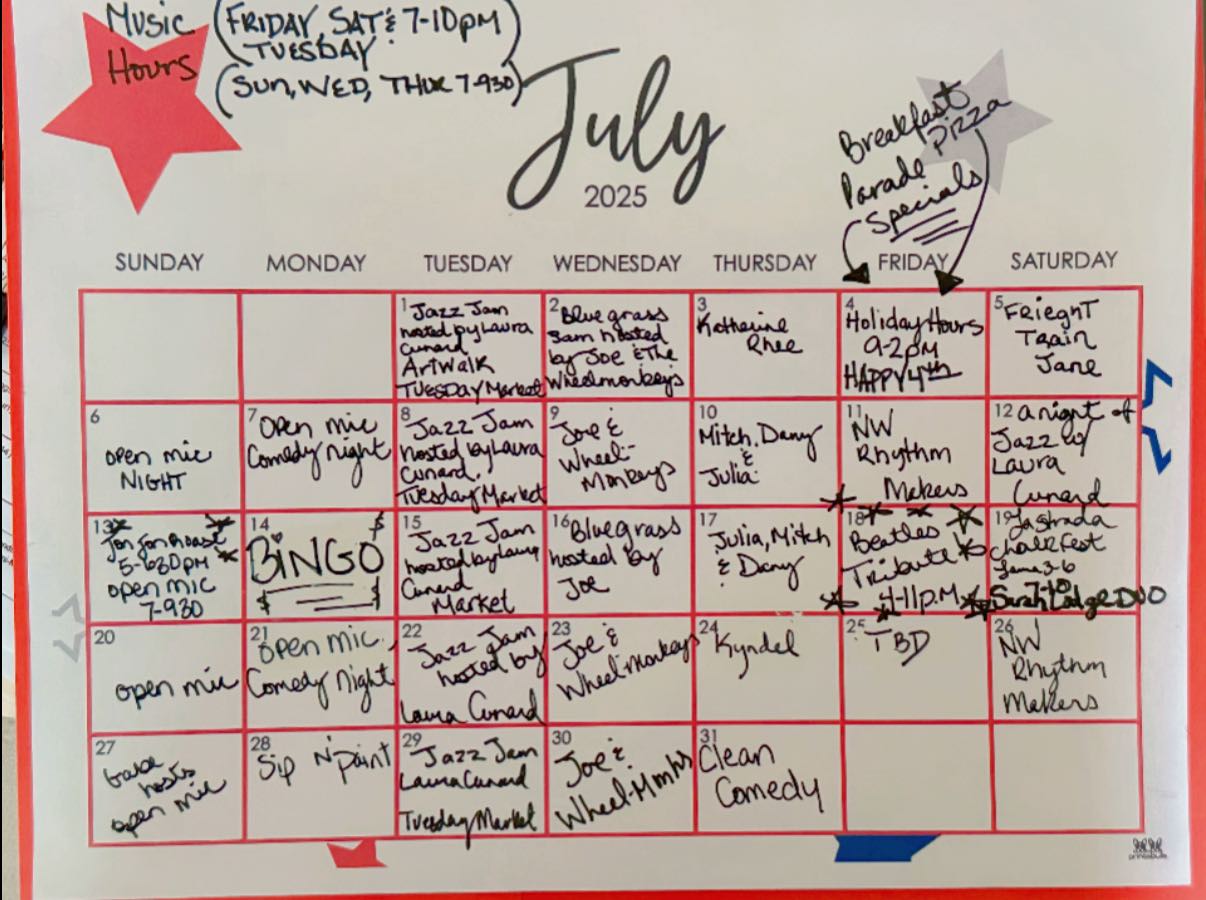 Music
Hours
(FRIDAY, SAT & 7-10pm
TUESDAY
(SUN, WED, THUR 7-930)
July
2025
Breakfast
Pizza
Parade
Specials
SUNDAY MONDAY TUESDAY WEDNESDAY THURSDAY FRIDAY SATURDAY
1 Jazz Jam
hosted by Laura
Cunard
ArtWalk
TUESDAY Market
2 Bluegrass
Jam hosted
by Joe & The
Wheelmonkeys
3
Katherine
Rhee
4
Holiday Hours
9-2pm
HAPPY 4th
5 FRIEGHT
TRAIN
Jane
6
open mic
NIGHT
7 Open mic
Comedy night
8
Jazz Jam
hosted by Laura
Cunard,
Tuesday Market
9
Joe &
Wheel-
Monkeys
10
Mitch, Dany
&
Julia
11
NW
Rhythm
Makers
12 a night of
Jazz w/
Laura
Cunard
13
Jon Jon Roast
5-630pm
open mic
7-930
14
BINGO
$ $
15
Jazz Jam
hosted by Laura
Cunard
Market
16 Bluegrass
hosted by
Joe
17
Julia, Mitch
& Dany
18
Beatles
Tribute
4-11p.m
19 Lastrada
chalk Fest
3-6
7-10
Sarah Lodge DUO
20
open mic
21
open mic
Comedy Night
22
Jazz Jam
hosted by
Laura Cunard
23
Joe &
Wheel-monkeys
24
Kyndel
25
TBD
26
NW
Rhythm
Makers
27
Gabe
hosts
open mic
28
Sip N' Paint
29
Jazz Jam
Laura Cunard
Tuesday Market
30
Joe &
31
Clean
Comedy